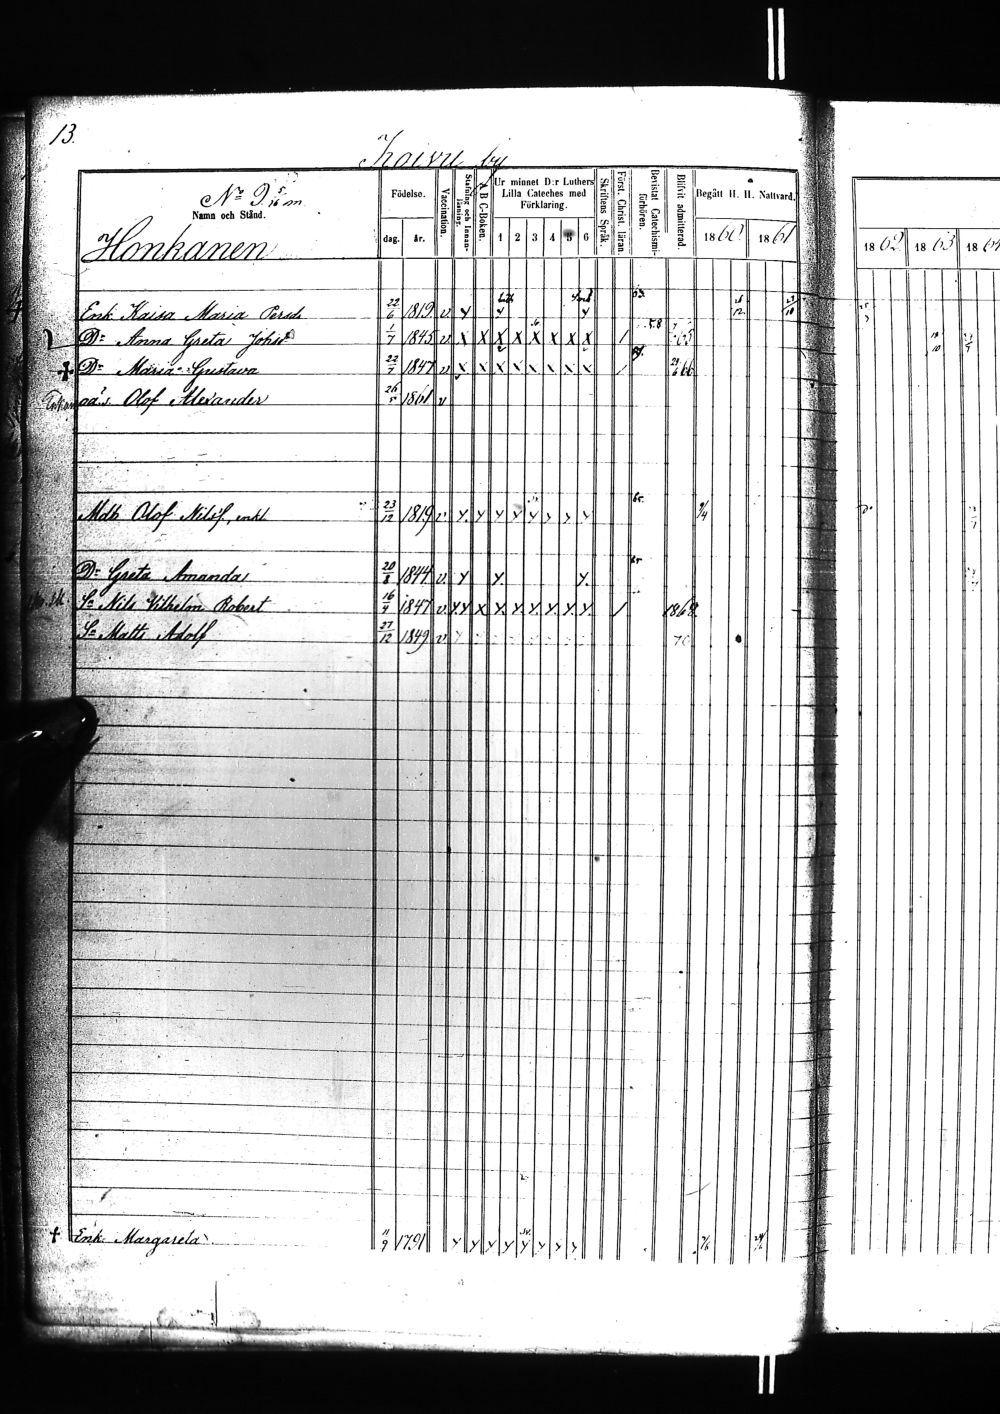 13.
Koivu by
No 9. 5/16 m
Namn och Stånd.
Honkanen
Födelse.
dag. år.
Vaccination.
Stafning och Innan-läsning.
A B C-Boken.
Ur minnet D:r Luthers Lilla Cateches med Förklaring.
1 2 3 4 5 6
Skriftens Språk.
Först. Christ. läran.
Bevistat Catechismi-förhören.
Blifvit admitterad.
Begått H. H. Nattvard.
1860 1861 1862 1863 1864
Enk Kaisa Maria Persdr 22/6 1819 v y y y
Dr Anna Greta Johsd 1/7 1845 v x x x x x x x x / 65
+ Dr Maria Gustava 22/7 1847 v x x x x x x x x / 66
oä. s. Olof Alexander 26/5 1861 v
Mdh Olof Nilsf, enkl 23/12 1819 v y y y y y y y y 9/4
Dr Greta Amanda 20/8 1844 v. y y. y.
Sn Nils Vilhelm Robert 16/4 1847 v. y. y x y. y. y. y. y. y. / 1868
Sn Matts Adolf 27/12 1849 v 70
+ Enk. Margareta 11/9 1791 y y y y y y y y